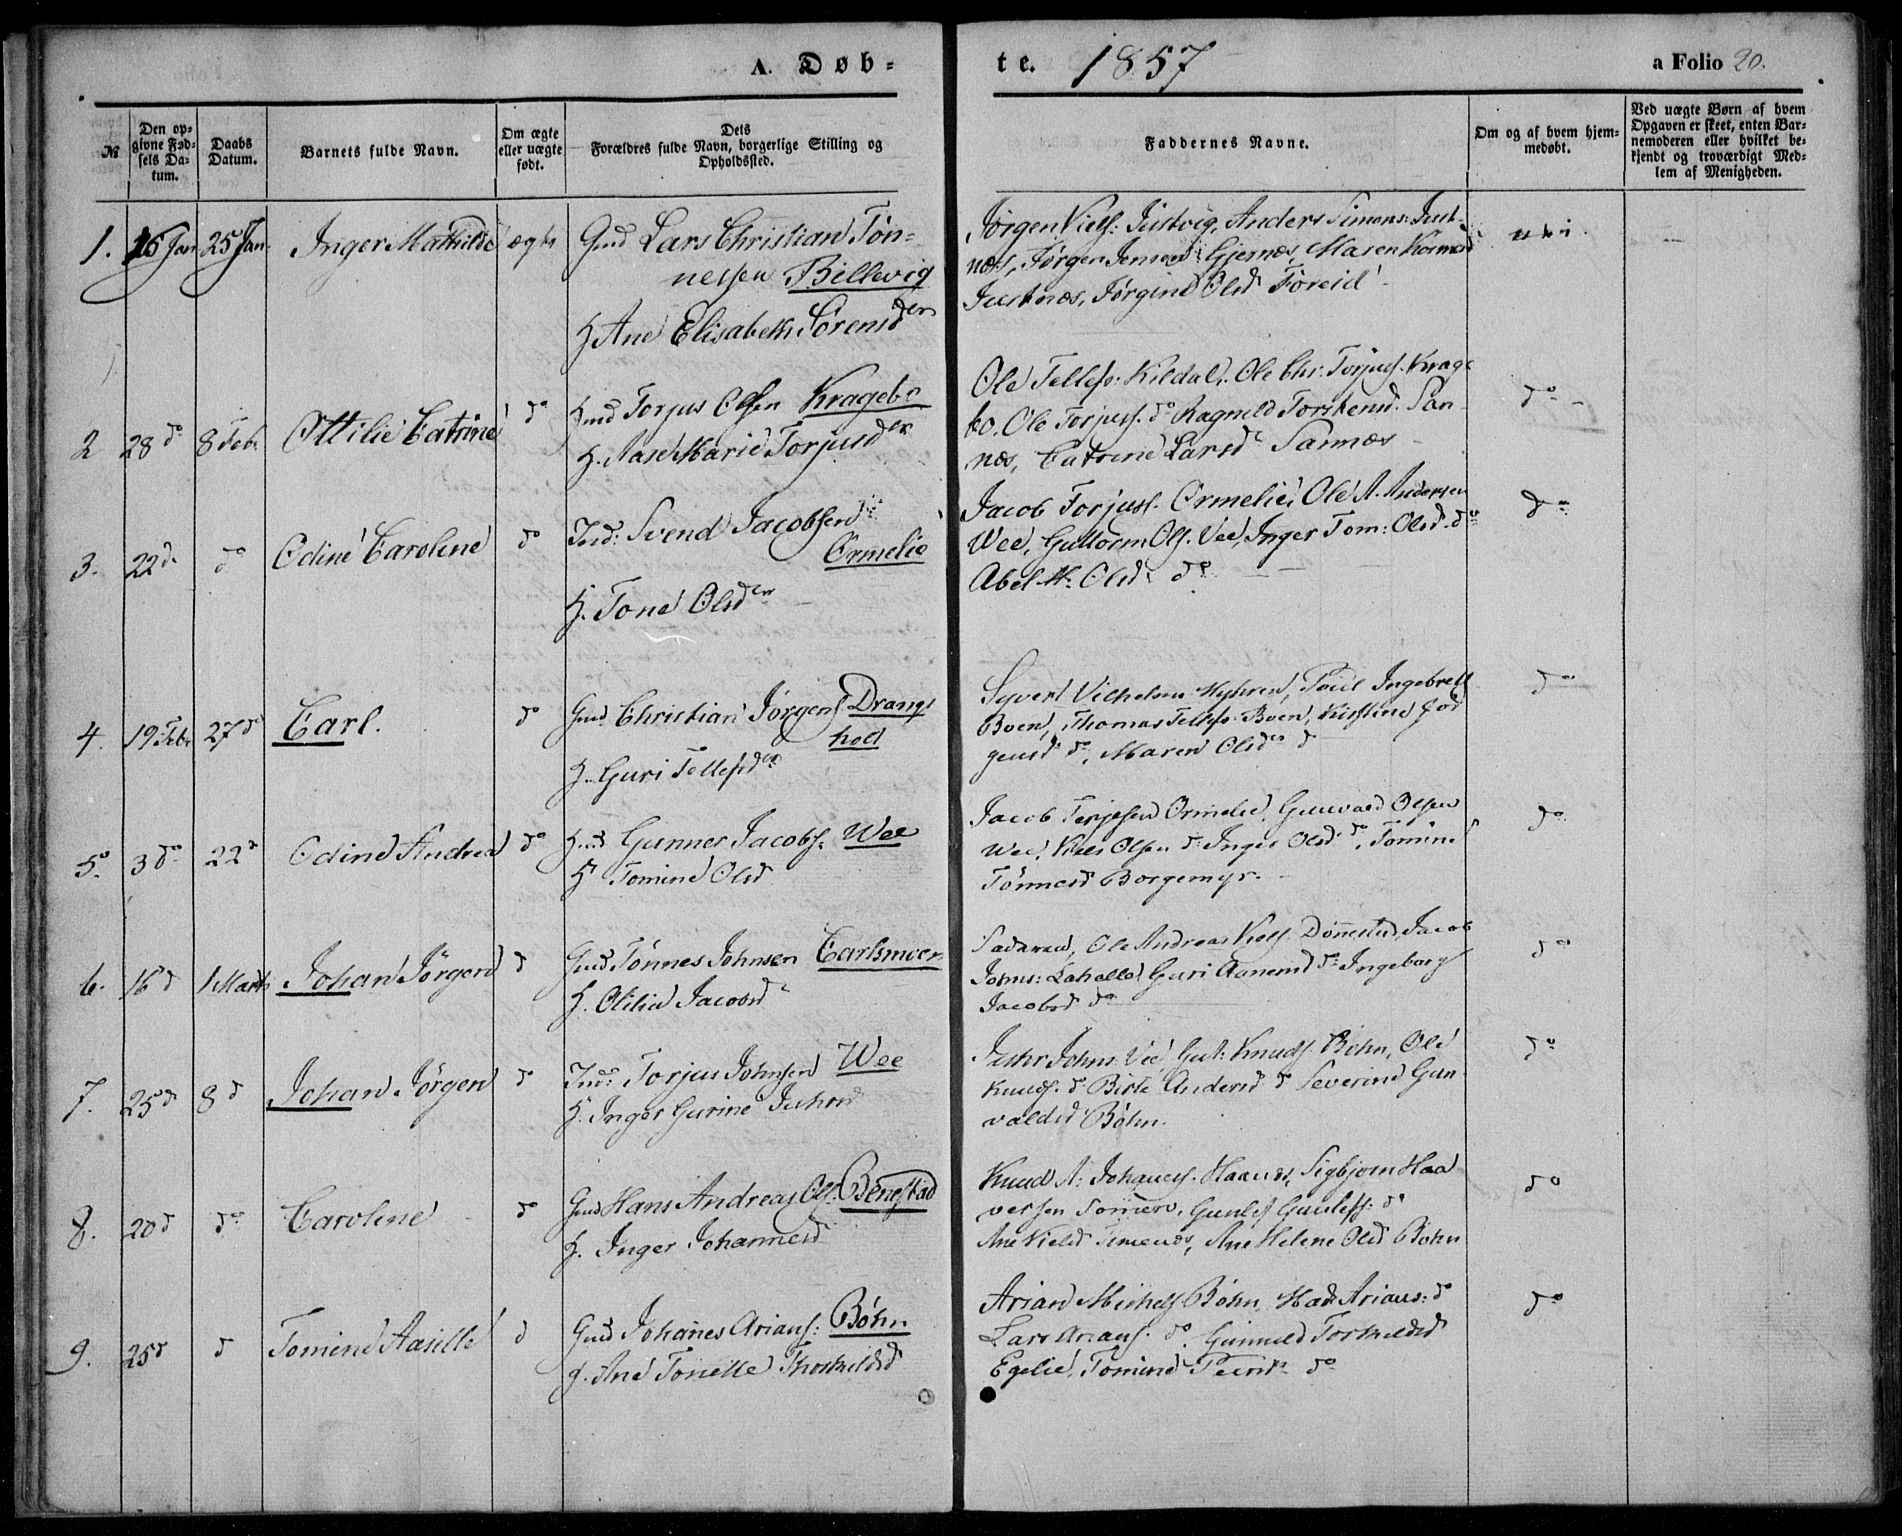 A. Døb-
te. 1857
a Folio 20.
№
Den op-
givne Fød-
sels Da-
tum.
Daabs
Datum.
Barnets fulde Navn.
Om ægte
eller uægte
født.
Dets
Forældres fulde Navn, borgerlige Stilling og
Opholdssted.
Faddernes Navne.
Om og af hvem hjem-
medøbt.
Ved uægte Børn af hvem
Opgaven er skeet, enten Bar-
nemoderen eller hvilket be-
kjendt og troværdigt Med-
lem af Menigheden.
1. 16 Jan 25 Jan. Inger Mathilde ægte
Gmd Lars Christian Tøn-
nessen Billevig
H Ane Elisabeth Sørensd
Jørgen Niels: Justvig, Anders Simons: Just-
næs, Jørgen Gjernæs, Maren
Justnæs, Jørgine Olsd Foreid
2 28 do 8 Feb. Ottilie Catrine do
Torjus Olsen Kragebo
H. Aase Marie Torjusd
Ole Tellefs: Kildal, Ole Chr. Torjus. Krage
bo. Ole Torjuss. do Ragnild Torstensd. San
næs, Catrine Larsd Sannæs
do
3. 22 d. do Odine Caroline do
Ind: Svend Jacobsen
Ormelie
H. Tone Olsd
Jacob Torjuss. Ormelie, Ole A. Andersen
Wee, Guttorm Ols. Vee, Inger Tom: Olsd. do
Abel M. Olsd. do
do
4. 19 Feb. 27 d Carl. do
Gmd Christian Jørgens Drangs
hol
H. Guri Tellefsd
Syvert Vilhelm Myhren, Poul Ingebrets
Boen, Thomas Tellefs. Boen, Kirstine Jør
gensd do, Maren Olsd d
do
5. 3 do 22 Odine Andrea do
Gunner Jacobs. Wee
H Tomine Olsd
Jacob Terjesen Ormelie, Gunvald Olsen
Wee, Niels Olsen d. Inger Olsd do, Tomine
Tønnesd Borgemyr.
do
6. 16 d 1 Marts Johan Jørgen d
Gmd Tønnes Johnsen Carlsmoen
H. Otilia Jacobsd
Ole Andreas Niels. Dønnestad, Jacob
Johns: Lahelle, Guri Aanensd d. Ingeborg
Jacobsd do
do
7. 25 d 8 d Johan Jørgen d
Ind: Torjus Johnsen Wee
H. Inger Gurine
Johns: Vee, Gut: Knuds. Bøhn, Ole
Knuds. d. Birte Andersd d Severine Gun
valdsd Bøhn.
do
8. 20 d do Caroline do
Gmd Hans Andreas Ols. Benestad
H. Inger Johannesd
Knud A. Johannes. Haanes, Sigbjørn Haa
versen Gunlef Gunlefs: do
Ane Nielsd Ane Helene Olsd Bøhn
do
9. 25 d d Tomine Aasille d
Gmd Johanes Arians: Bøhn
H. Ane Tonette Thorkildsd
Arian Michels Bøhn, Mads Arians: d
Lars Arians. do. Gunnild Torkildsd
Egelie, Tomine do
do